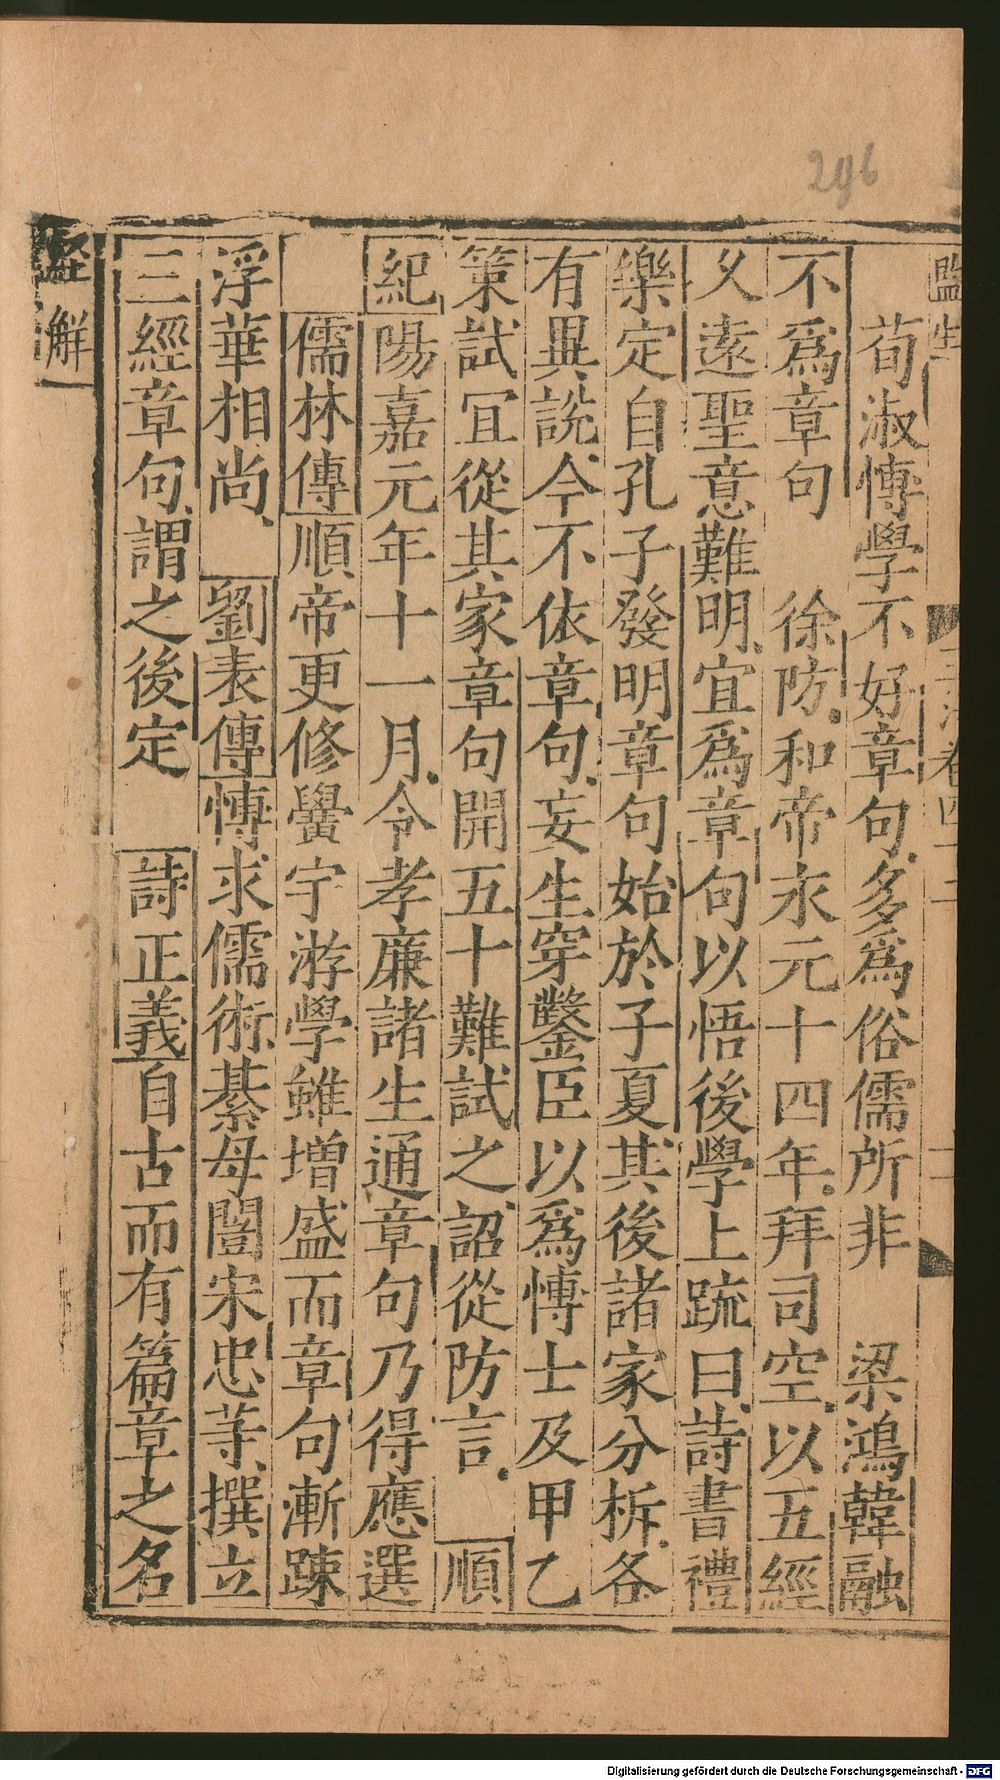 296
荀淑慱學不好章句多爲俗儒所非　梁鴻韓融
不爲章句　徐防和帝永元十四年拜司空以五經
乆遠聖意難明宜爲章句以悟後學上疏曰詩書禮
樂定自孔子發明章句始於子夏其後諸家分析各
有異說今不依章句妄生穿鑿臣以爲慱士及甲乙
策試宜從其家章句開五十難試之詔從防言　順
紀陽嘉元年十一月令孝廉諸生通章句乃得應選
儒林傳順帝更修黌宇游學雖增盛而章句漸踈
浮華相尚　劉表傳慱求儒術綦母闓宋忠等撰立
三經章句謂之後定　詩正義自古而有篇章之名
經解
Digitalisierung gefördert durch die Deutsche Forschungsgemeinschaft - DFG